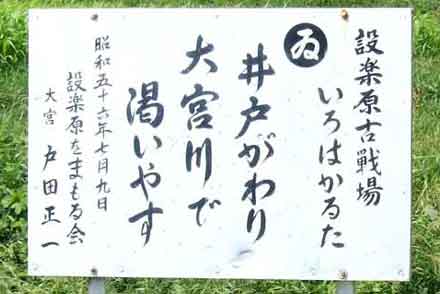 設楽原古戦場
いろはかるた
ゐ
井戸がわり
大宮川で
渇いやす
昭和五十六年七月九日
設楽原をまもる会
大宮 戸田正一